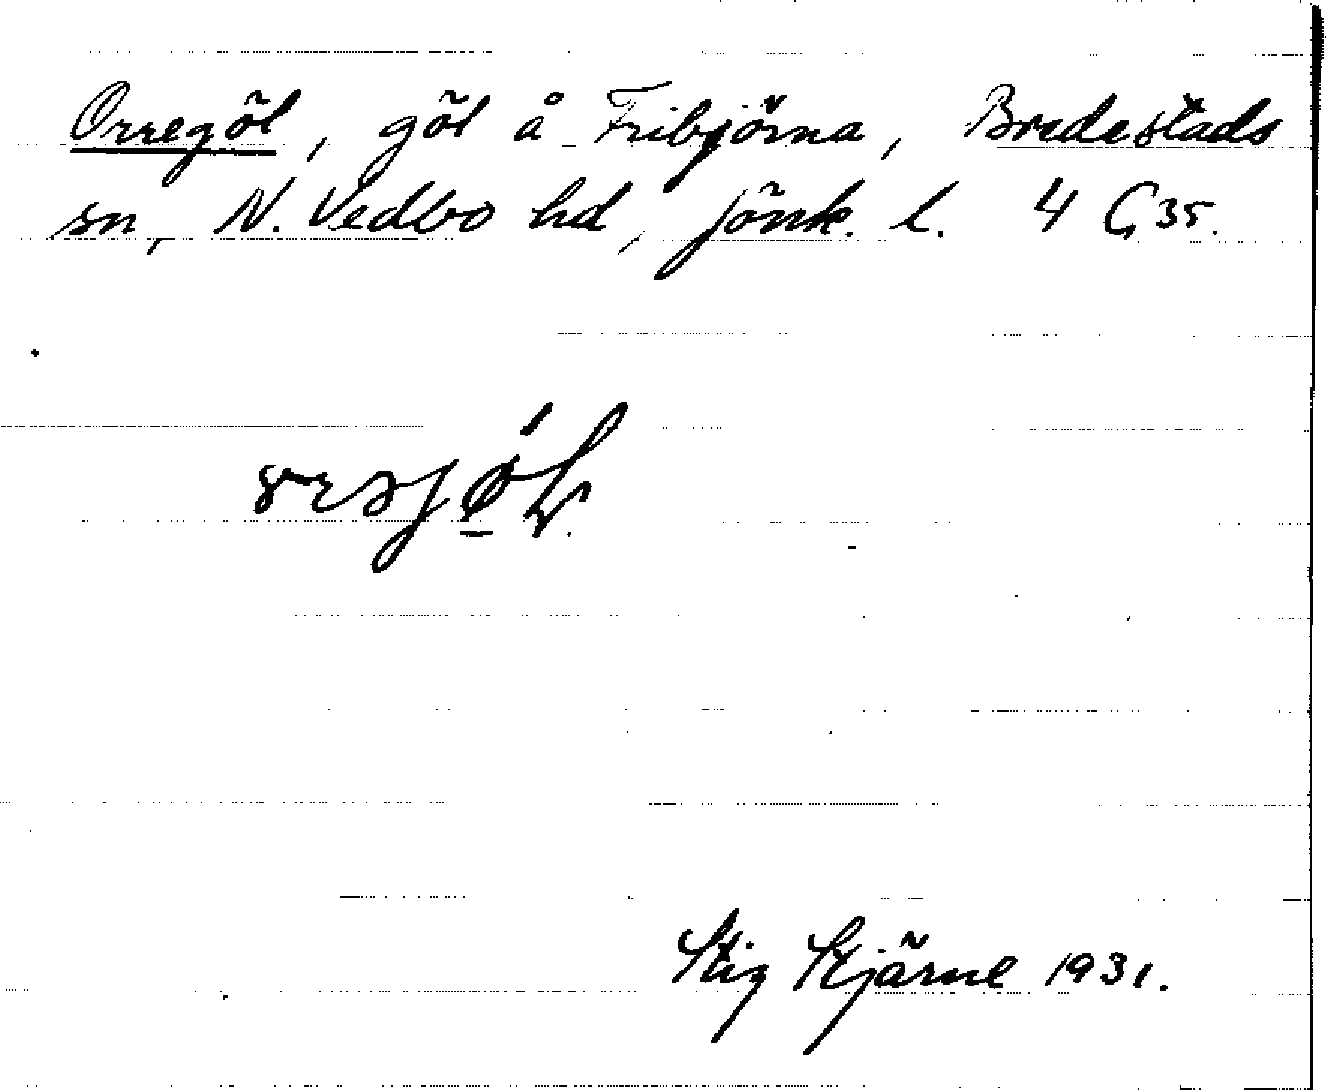 Orregöl, göl å Fribjörna, Bredestads
sn, N. Vedbo hd, Jönk. l. 4 G 35.
Stig Stjärne 1931.